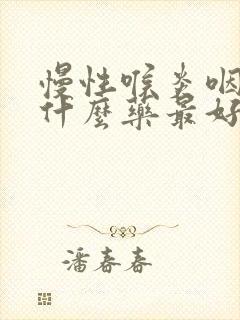 慢性喉炎咽
什麼藥最好
潘春春